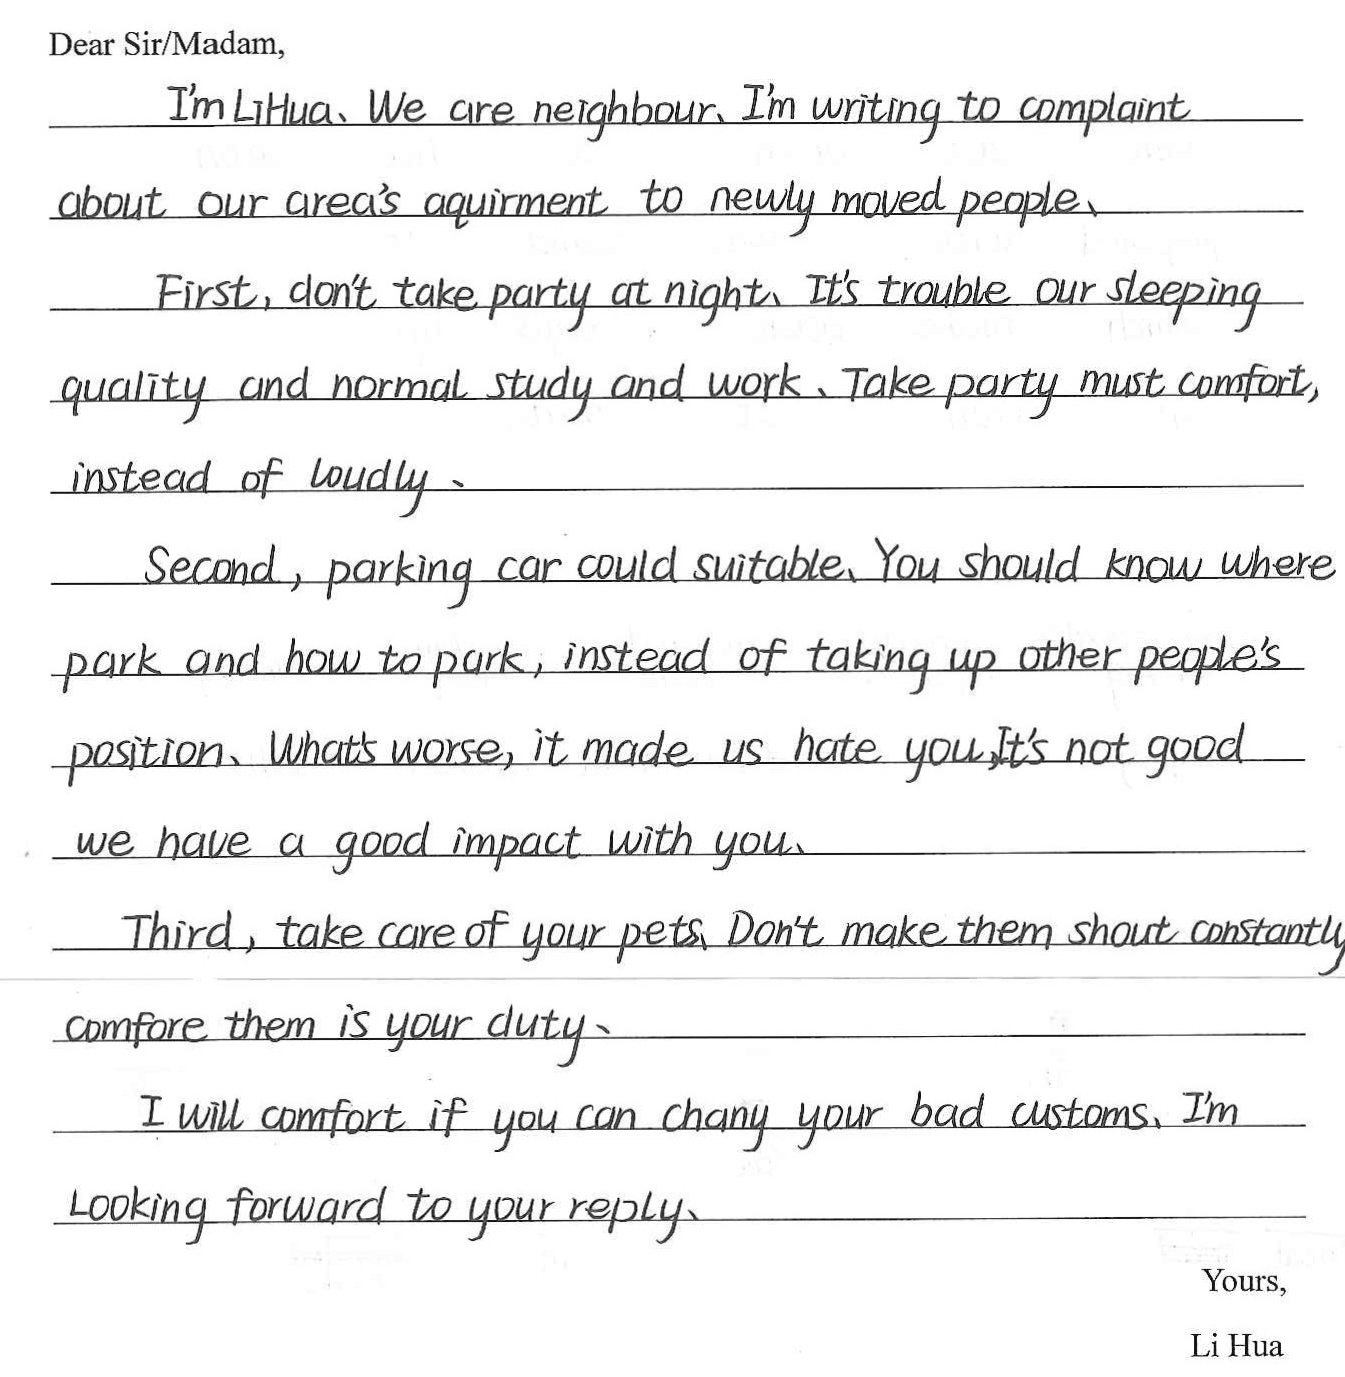 Dear Sir/Madam,
I'm LiHua、We are neighbour、I'm writing to complaint
about our area's aquirment to newly moved people、
First, don't take party at night、It's trouble our sleeping
quality and normal study and work、Take party must comfort,
instead of loudly、
Second, parking car could suitable、You should know where
park and how to park, instead of taking up other people's
position、What's worse, it made us hate you,It's not good
we have a good impact with you、
Third, take care of your pets、Don't make them shout constantly
comfore them is your duty、
I will comfort if you can chany your bad customs、I'm
Looking forward to your reply、
Yours,
Li Hua